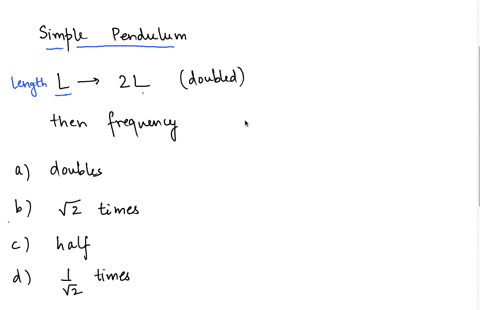 Simple Pendulum
length L → 2L (doubled)
then frequency
a) doubles
b) √2 times
c) half
d) 1/√2 times